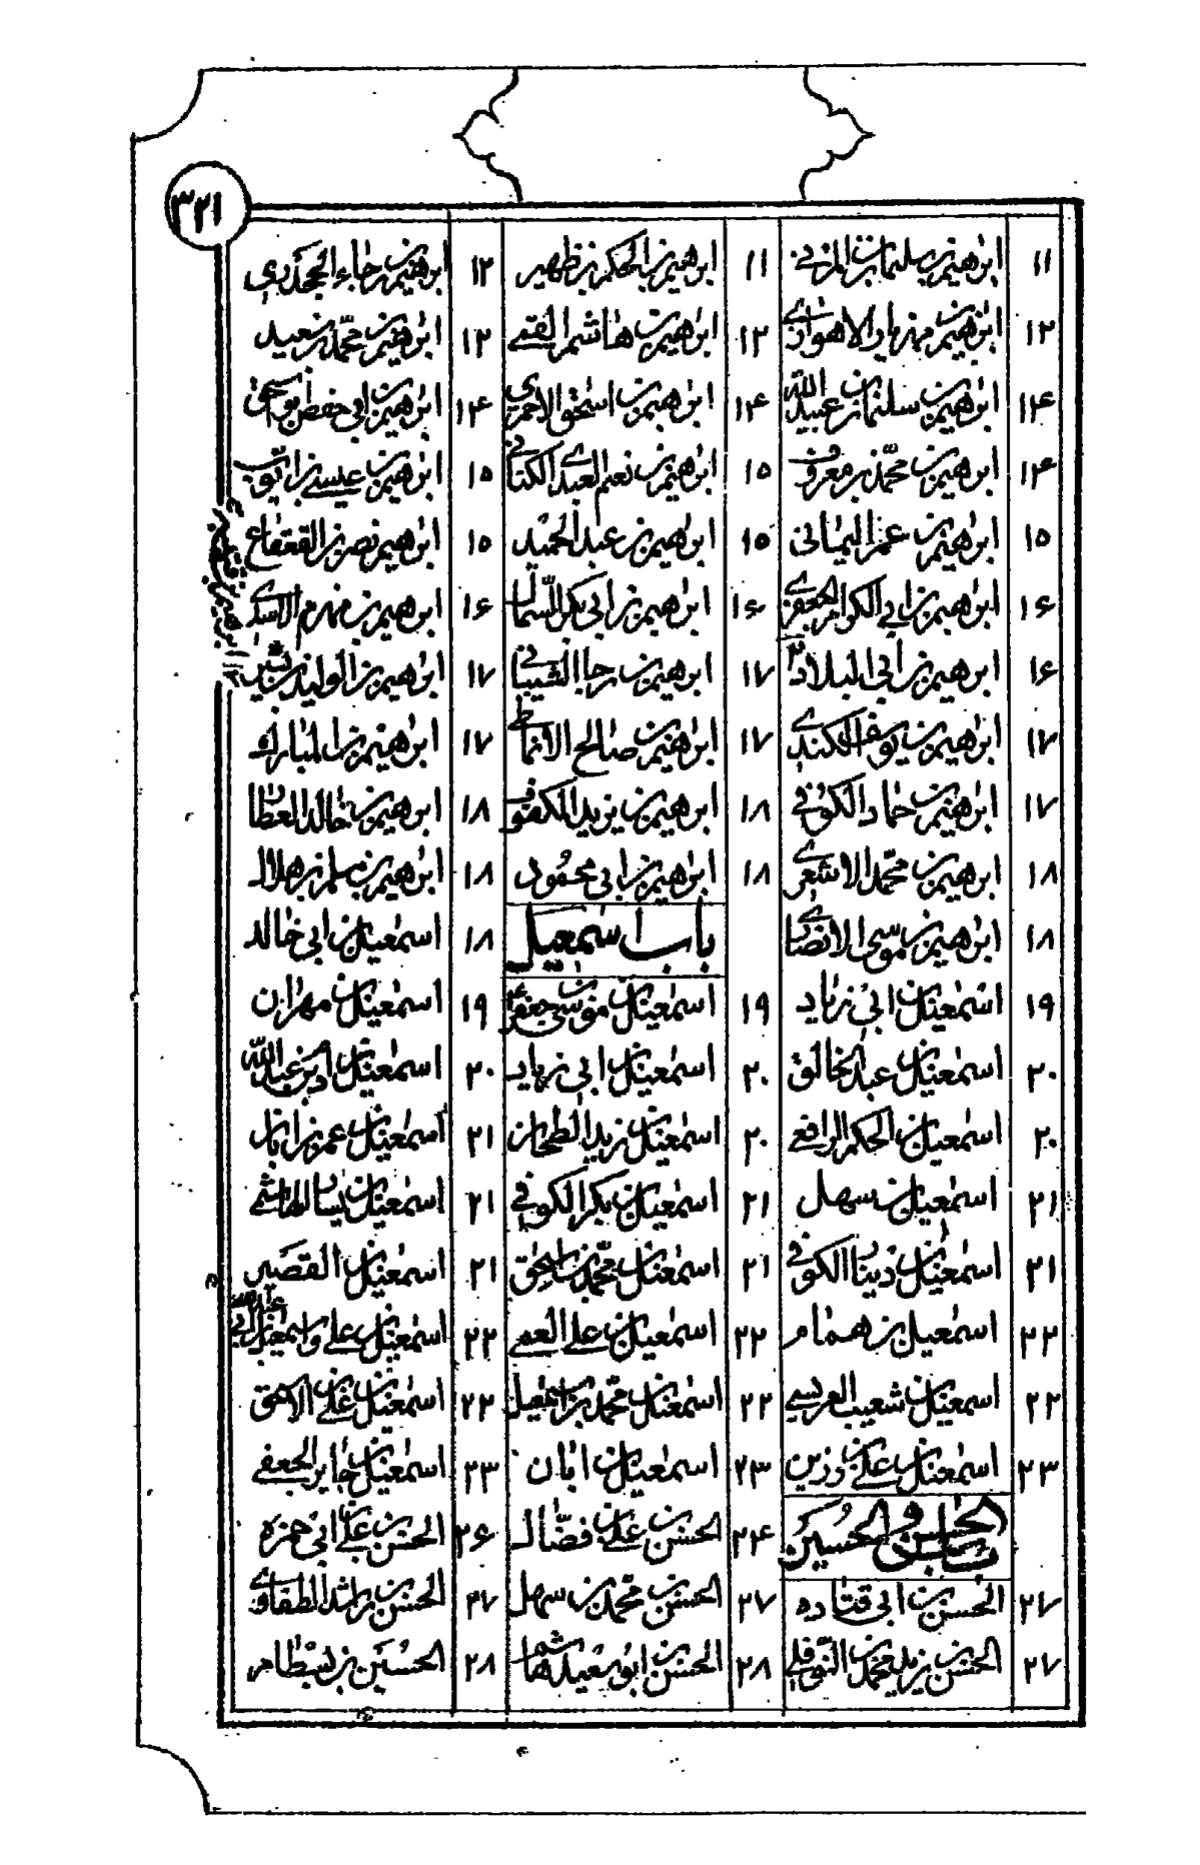 ٣٢١
١١ ابرهيم بن سليمان المزنى ١١ ابرهيم بن الحكم بن ظهير ١٢ ابرهيم بن رجاء الجحدرى
١٢ ابرهيم بن مهزيار الاهوازى ١٢ ابرهيم بن هاشم القمى ١٣ ابرهيم بن محمد بن سعيد
١۴ ابرهيم بن سليمان بن عبيد الله ١۴ ابرهيم بن اسحق الاحمرى ١۴ ابرهيم بن ابى حفص ابو اسحق
١۴ ابرهيم بن محمد بن معروف ١٥ ابرهيم بن نعيم العبدى الكنانى ١٥ ابرهيم بن عيسى بن ايوب
١٥ ابرهيم بن عمر اليمانى ١٥ ابرهيم بن عبد الحميد ١٥ ابرهيم بن نصر بن القعقاع
١۶ ابرهيم بن ابى الكرام الجعفرى ١۶ ابرهيم بن ابى بكر السمال ١۶ ابرهيم بن مهزم الاسدى
١۶ ابرهيم بن ابى البلاد ١٧ ابرهيم بن رجا الشيبانى ١٧ ابرهيم بن الوليد بن بشير
١٧ ابرهيم بن يوسف الكندى ١٧ ابرهيم بن صالح الانماطى ١٧ ابرهيم بن المبارك
١٧ ابرهيم بن حماد الكوفى ١٨ ابرهيم بن يزيد المكفوف ١٨ ابرهيم بن خالد العطار
١٨ ابرهيم بن محمد الاشعرى ١٨ ابرهيم بن ابى محمود ١٨ ابرهيم بن مسلم بن هلال
١٨ ابرهيم بن موسى الانصارى باب اسمعيل ١٨ اسمعيل بن ابى خالد
١٩ اسمعيل بن ابى زياد ١٩ اسمعيل بن موسى بن جعفر ١٩ اسمعيل بن مهران
٢٠ اسمعيل بن عبد الخالق ٢٠ اسمعيل بن ابى زياد ٢٠ اسمعيل بن ادم بن عبد الله
٢٠ اسمعيل بن الحكم الرافعى ٢٠ اسمعيل بن زيد الطحان ٢١ اسمعيل بن عمر بن ابان
٢١ اسمعيل بن سهل ٢١ اسمعيل بن بكر الكوفى ٢١ اسمعيل بن يسار الهاشمى
٢١ اسمعيل بن دينار الكوفى ٢١ اسمعيل بن محمد بن اسحق ٢١ اسمعيل القصير
٢٢ اسمعيل بن همام ٢٢ اسمعيل بن على العمى ٢٢ اسمعيل بن على واسمعيل بن ابى عبد الله
٢٢ اسمعيل بن شعيب العريسى ٢٢ اسمعيل بن محمد بن اسمعيل ٢٢ اسمعيل بن على بن اسحق
٢٣ اسمعيل بن على بن رزين ٢٣ اسمعيل بن ابان ٢٣ اسمعيل بن جابر الجعفى
باب الحسن والحسين ٢۴ الحسن بن على بن فضال ٢۶ الحسن بن على بن ابى حمزه
٢٧ الحسن بن ابى قتاده ٢٧ الحسن بن محمد بن سهل ٢٧ الحسن بن راشد الطفاوى
٢٧ الحسن بن يزيد محمد بن النوفلى ٢٨ الحسن بن ابو سعيد هاشم ٢٨ الحسين بن بسطام